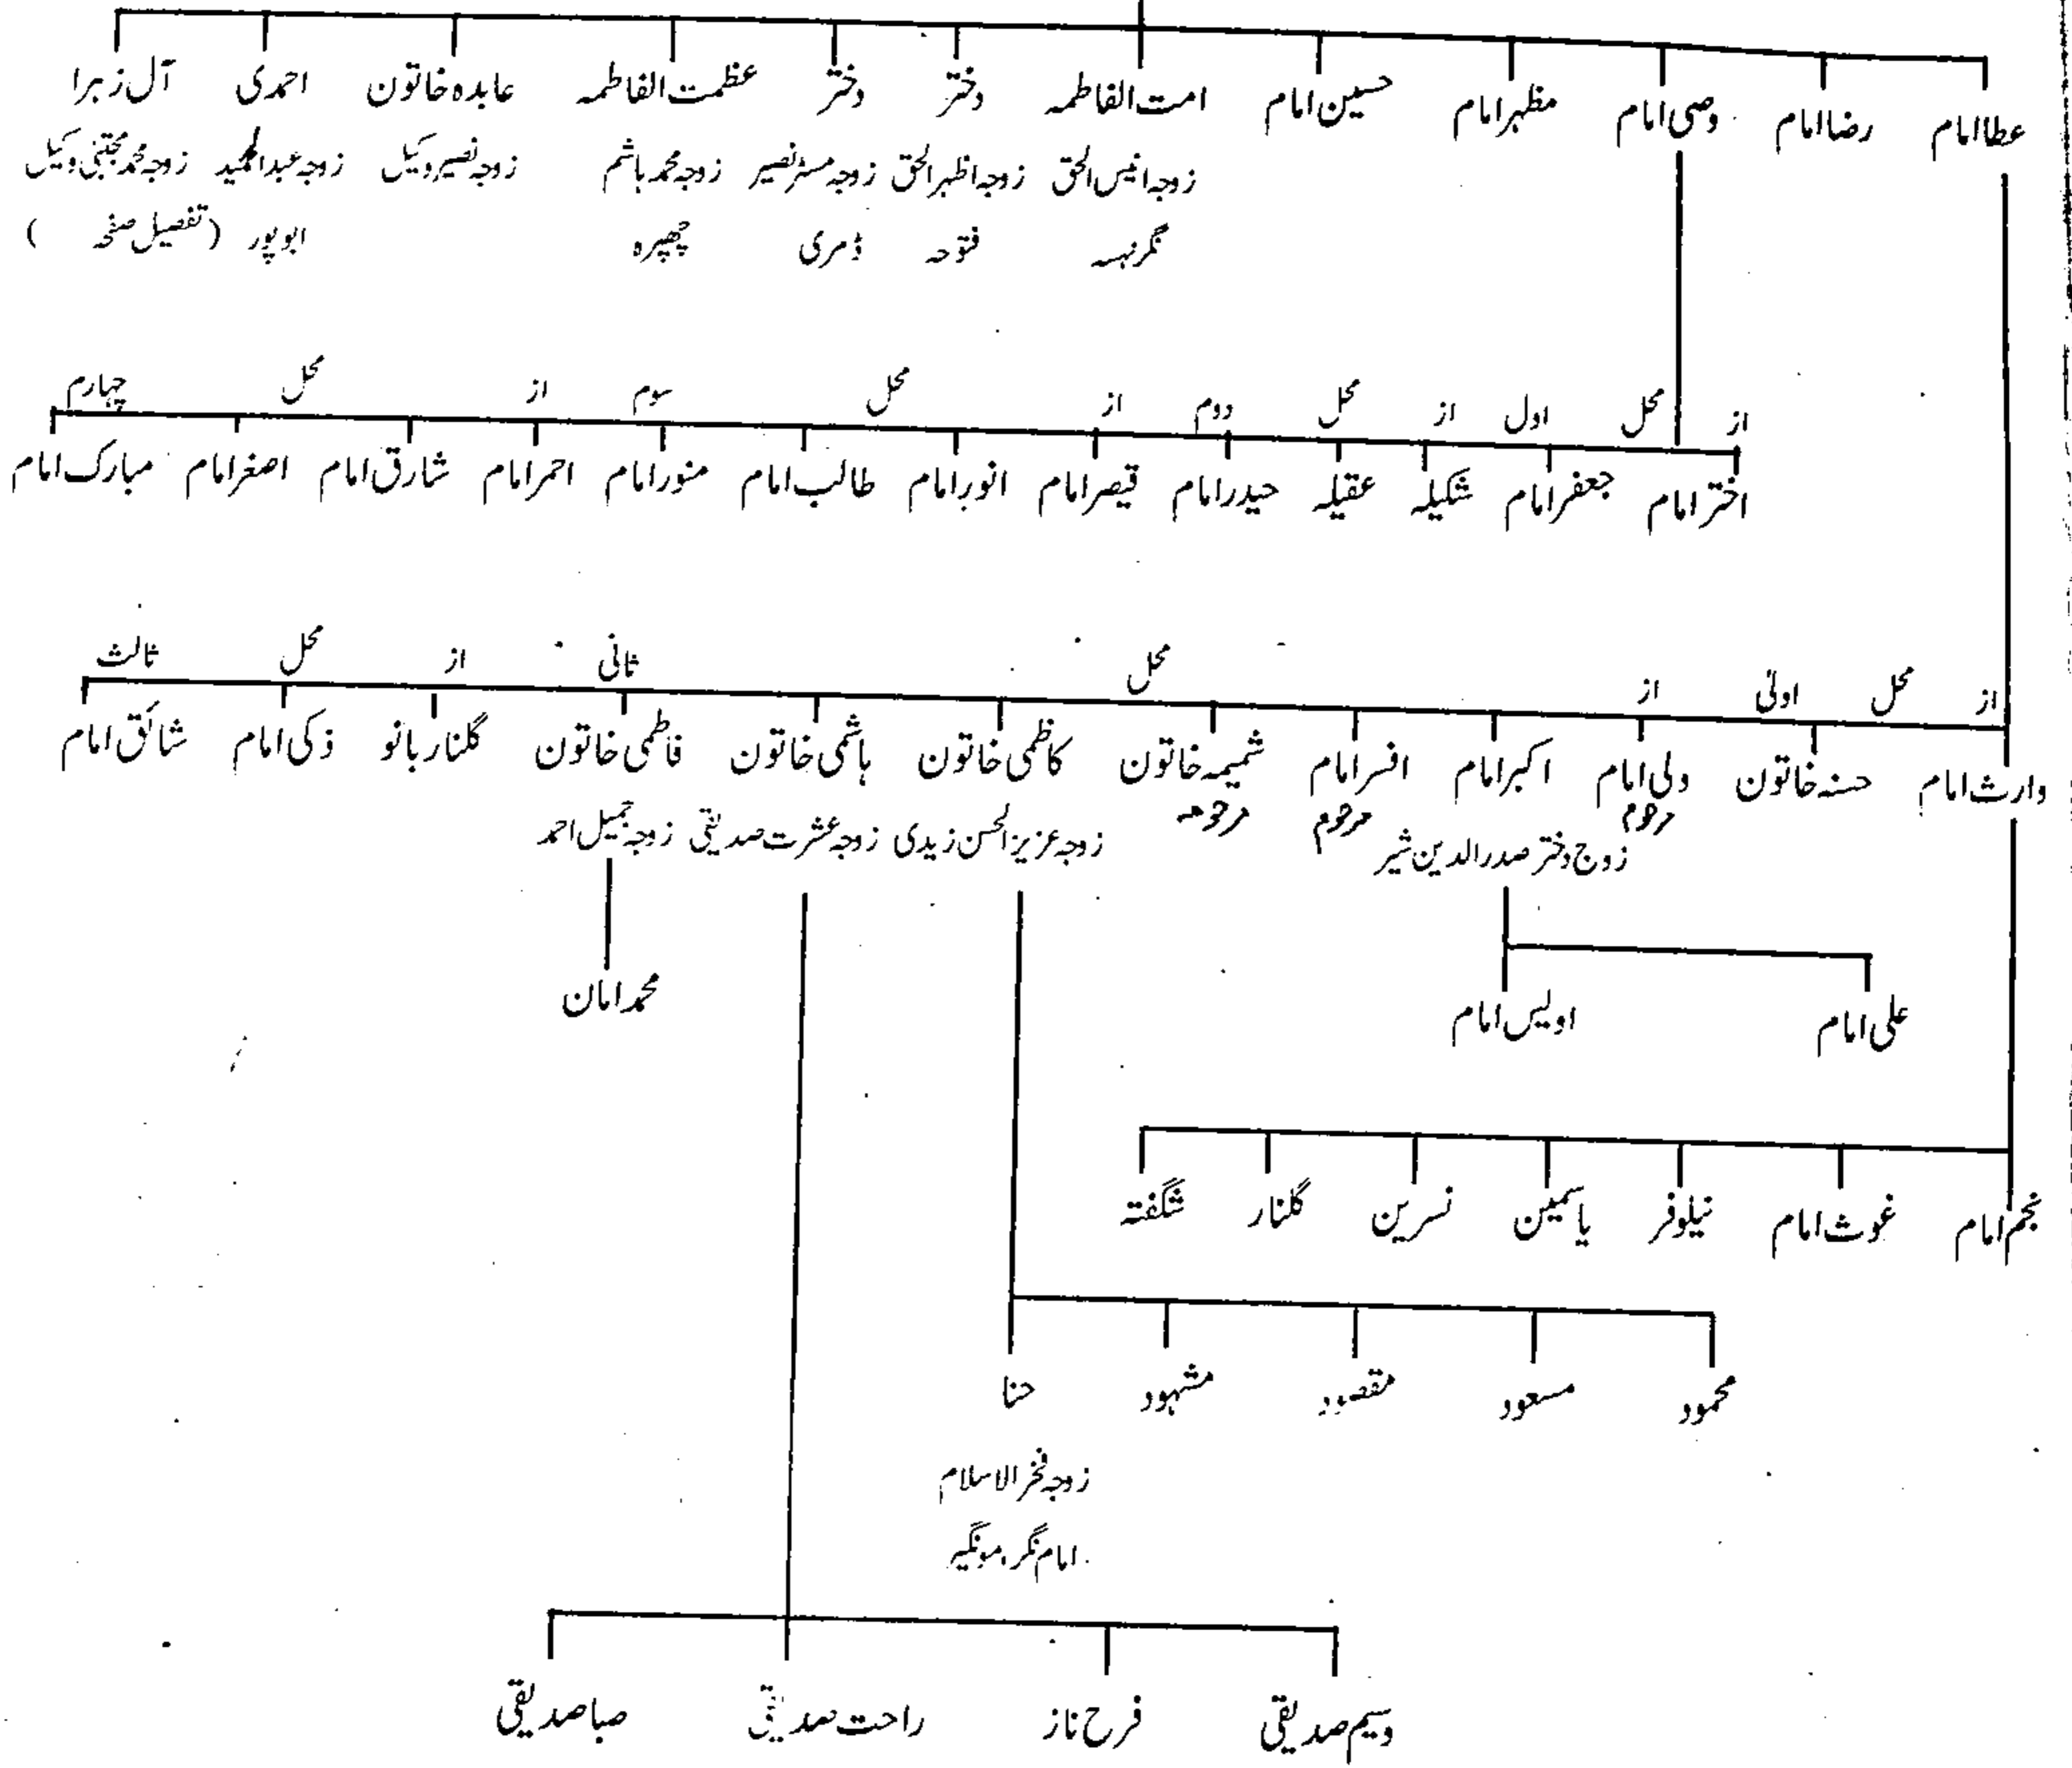 عطا امام رضا امام وصی امام مظہر امام حسین امام امت الفاطمہ دختر دختر عظمت الفاطمہ عابدہ خاتون احمدی آل زہرا
زوجہ انیس الحق زوجہ اظہر الحق زوجہ مسٹر نصیر زوجہ محمد ہاشم زوجہ نصیر وکیل زوجہ عبدالحمید زوجہ محمد مجتبیٰ وکیل
نگرنہسہ فتوحہ ڈمری چھپرہ ابوپور (تفصیل صفحہ )
از محل اول از محل دوم از محل سوم از محل چہارم
اختر امام جعفر امام شکیلہ عقیلہ حیدر امام قیصر امام انور امام طالب امام منور امام احمر امام شارق امام اصغر امام مبارک امام
از محل اولیٰ از محل ثانی از محل ثالث
وارث امام حسنہ خاتون ولی امام اکبر امام افسر امام شمیمہ خاتون کاظمی خاتون ہاشمی خاتون فاطمی خاتون گلنار بانو ذکی امام شائق امام
مرحوم مرحوم مرحومہ
زوج دختر صدرالدین شیر زوجہ عزیز الحسن زیدی زوجہ عشرت صدیقی زوجہ جمیل احمد
علی امام اویس امام محمد امان
نجم امام غوث امام نیلوفر یاسمین نسرین گلنار شگفتہ
محمود مسعود مقصود مشہود حنا
زوجہ فخر الاسلام
امام نگر، مونگیر
وسیم صدیقی فرح ناز راحت صدیقی صبا صدیقی